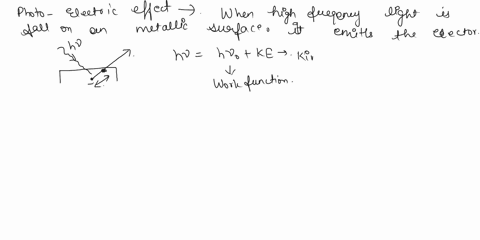 Photo- Electric effect → When high frequency light is
fall on an metallic surface. it emitts the elector.
hν
hν = hν₀ + KE → Ki.
↓
Work function.